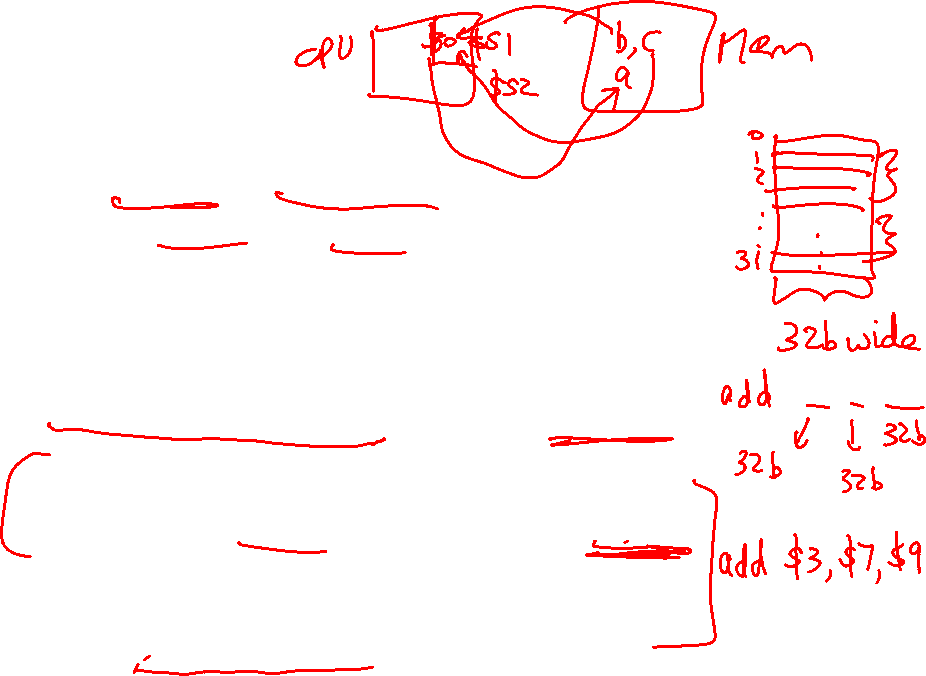 CPU
$s1
b, c
Mem
$s2
a
0
1
2
31
32b wide
add
32b
32b
32b
add $3, $7, $9